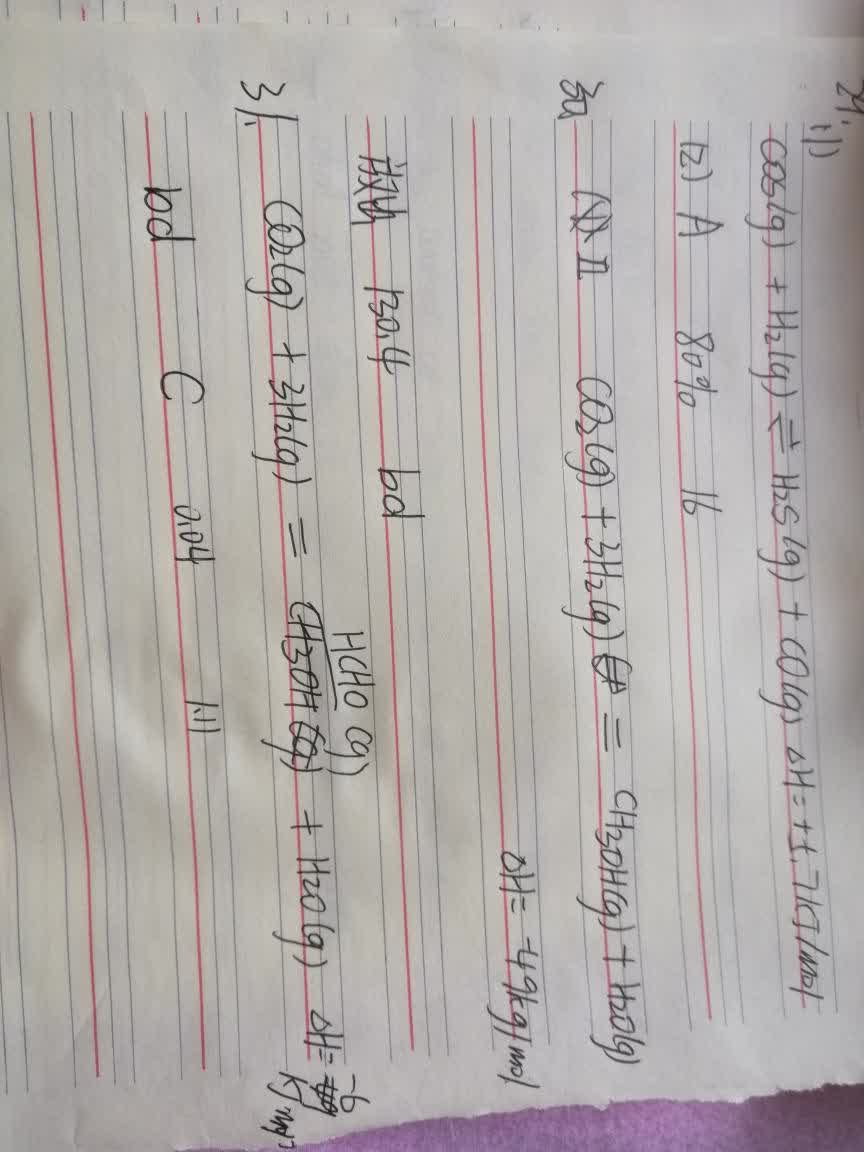 29. (1) COS(g) + H2(g) ⇌ H2S(g) + CO(g) ΔH=+5.7kJ/mol
(2) A 80% 16
30. II CO2(g) + 3H2(g) = CH3OH(g) + H2O(g)
ΔH= -49kg/mol
放热 130.4 bd
31. CO2(g) + 3H2(g) = HCHO (g) + H2O(g) ΔH= -6
kJ/mol
bd C 0.04